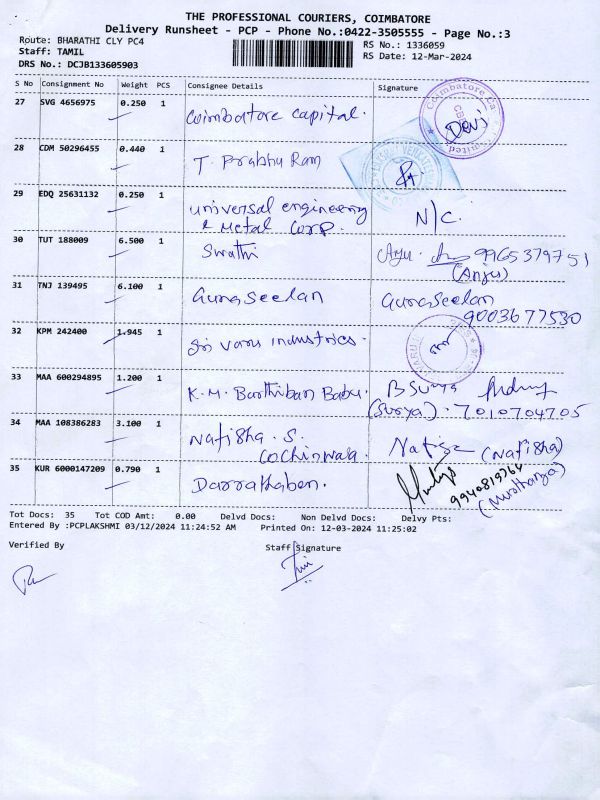 THE PROFESSIONAL COURIERS, COIMBATORE
Delivery Runsheet - PCP - Phone No.:0422-3505555 - Page No.:3
Route: BHARATHI CLY PC4
RS No.: 1336059
Staff: TAMIL
RS Date: 12-Mar-2024
DRS No.: DCJB133605903
S No Consignment No Weight PCS Consignee Details Signature
27 SVG 4656975 0.250 1 Coimbatore capital. Devi
28 CDM 50296455 0.440 1 T. Prabhu Ram
29 EDQ 25631132 0.250 1 universal engineering N/C.
& Metal Corp.
30 TUT 188009 6.500 1 Swathi Anju 9965379751
(Anju)
31 TNJ 139495 6.100 1 Gunaseelan Gunaseelan
9003677530
32 KPM 242400 1.945 1 Sri varu industries.
33 MAA 600294895 1.200 1 K.M. Barthiban Babu. B Surya
(Surya). 7010704705
34 MAA 108386283 3.100 1 Nafisha . S. (Nafisha)
Cochinwala
35 KUR 6000147209 0.790 1 Darrathaben.
Tot Docs: 35 Tot COD Amt: 0.00 Delvd Docs: Non Delvd Docs: Delvy Pts:
Entered By :PCPLAKSHMI 03/12/2024 11:24:52 AM Printed On: 12-03-2024 11:25:02
Verified By Staff Signature